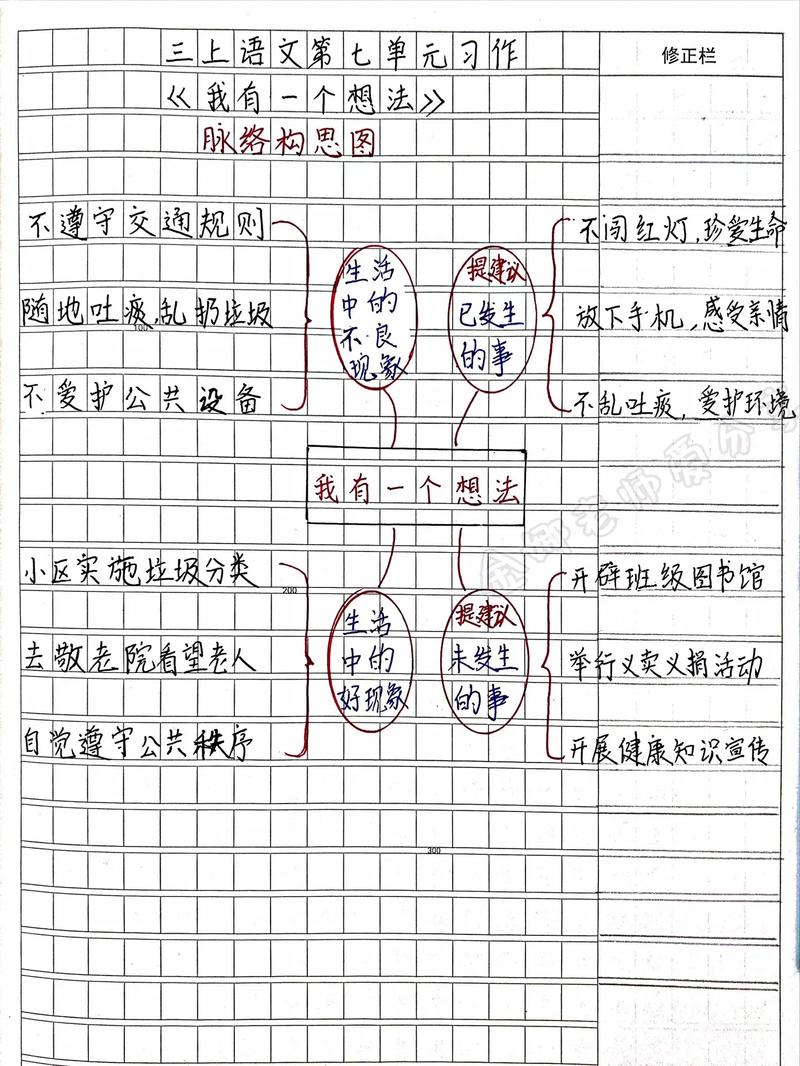 三上语文第七单元习作
修正栏
《我有一个想法》
脉络构思图
不遵守交通规则
随地吐痰,乱扔垃圾
不爱护公共设备
生活
中的
不良
现象
提建议
已发生
的事
不闯红灯,珍爱生命
放下手机,感受亲情
不乱吐痰,爱护环境
100
我有一个想法
小区实施垃圾分类
去敬老院看望老人
自觉遵守公共秩序
200
生活
中的
好现象
提建议
未发生
的事
开辟班级图书馆
举行义卖义捐活动
开展健康知识宣传
300